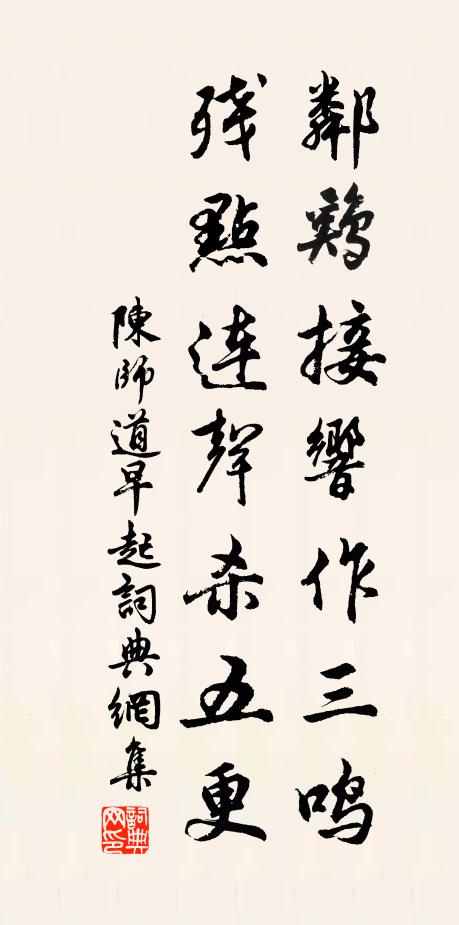 鄰鷄接響作三鳴
殘點連聲杀五更
陳師道早起詞典網集
詞典网印